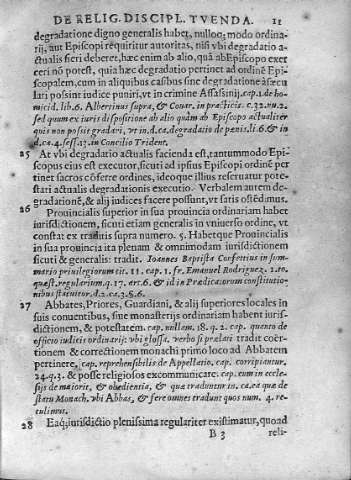 DE RELIG. DISCIPL. TVENDA. 11
degradatione digno generalis habet, nulloq; modo ordina-
rij, aut Episcopi requiritur autoritas, nisi vbi degradatio a-
ctualis fieri deberet, hæc enim ab alio, quã ab Episcopo exer
ceri nõ potest, quia hæc degradatio pertinet ad ordinẽ Epi-
scopalem, cum in aliquibus casibus sine degradatione à sæcu
lari possint iudice puniri, vt in crimine Assasinij, cap. 1. de ho-
micid. lib. 6. Albertinus supra, & Couar. in practicis. c. 32. nu. 2.
sed quum ex iuris dispositione ab alio quàm ab Episcopo actualiter
quis non possit gradari, vt in d. ca. degradatio de pœnis. li. 6. & in
d. ca. 4. sess. 13. in Concilio Trident.
25 At vbi degradatio actualis facienda est, tantummodo Epi-
scopus eius est executor, sicuti ad ipsius Episcopi ordinẽ per
tinet sacros cõferre ordines, ideoque illius reseruatur potest-
tati actualis degradationis executio. Verbalem autem de-
gradationẽ, & alij iudices facere possunt, vt satis ostẽdimus.
26 Prouincialis superior in sua prouincia ordinariam habet
iurisdictionem, sicuti etiam generalis in vniuerso ordine, vt
constat ex traditis supra numero. 5. Habetque Prouincialis
in sua prouincia ita plenam & omnimodam iurisdictionem
sicuti & generalis: tradit. Ioannes Baptista Corfettius in sum-
mario priuilegiorum tit. 11. cap. 1. fr. Emanuel Rodriguez. 2. to.
quæst. regularium. q. 17. art. 6. & id in Prædicatorum constitutio-
nibus statuitur. d. 2. ca. 3. §. 6.
27 Abbates, Priores, Guardiani, & alij superiores locales in
suis conuentibus, siue monasterijs ordinariam habent iurisdi-
ctionem, & potestatem. cap. nullam. 18. q. 2. cap. quanto de
officio iudicis ordinarij: vbi glossa. verbo si prælati tradit coër-
tionem & correctionem monachi primo loco ad Abbatem
pertinere, cap. reprehensibilis de Appellatio. cap. corripiantur.
24. q. 3. & posse religiosos excommunicare: cap. cum in eccle-
sijs de maiorit. & obedientia, & quæ traduntur in. ca. ea quæ de
statu Monach. vbi Abbas, & fere omnes tradunt quos num. 4. re-
tulimus.
28 Eaq; iurisdictio plenissima regulariter existimatur, quo ad
B 3 reli-